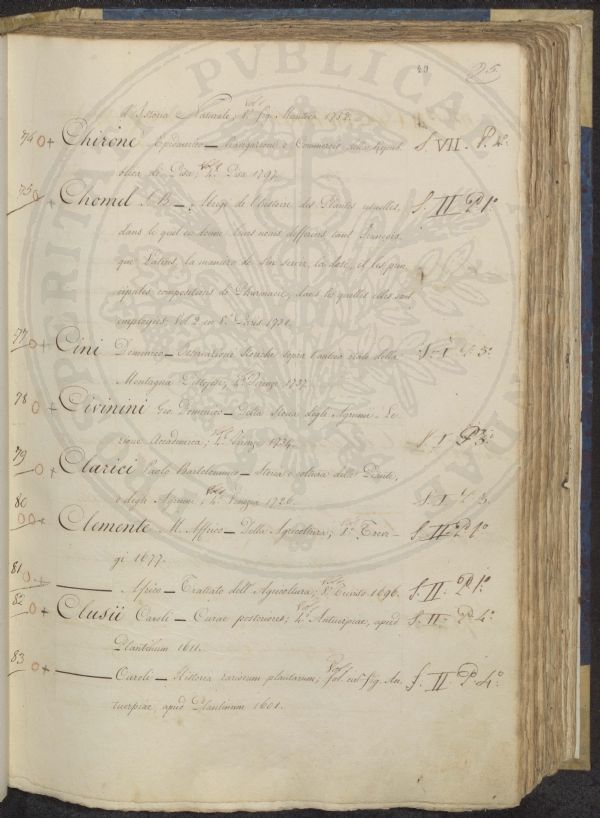 29 25
d'Istoria Naturale; Vol. 8.º fig. Mantova 1752.
76 Chirone Epidaurico — Navigazione e Commercio della Repub-
blica di Pisa; Vol. 4.º Pisa 1797. S. VII. P. 4.º
75 Chomel J. B. — Abrégé de l'histoire des Plantes usuelles, S. II P. 1.º
dans le quel on donne leurs noms differens, tant François,
que Latins, la maniere de s'en servir, la dose, et les prin-
cipales compositions de Pharmacie, dans les quelles elles sont
employées, Vol. 2 in 8.º Paris 1731.
77 Cini Domenico — Osservazione Storiche sopra l'antico stato della S. I P. 3.º
Montagna Pistojese; 4.º Firenze 1737.
78 Civinini Gio. Domenico — Della Storia degli Agrumi — Le-
zione Accademica; 4.º Firenze 1734. S. I P. 3.º
79 Clarici Paolo Bartolommeo — Storia e coltura delle Piante,
e degli Agrumi; Vol. 4.º Venezia 1726. S. I P. 3.
80 Clemente M. Affrico — Della Agricoltura; 8.º Trevi- S. II P. 1.º
gi 1677.
81 — Africo — Trattato dell'Agricoltura; Vol. 8.º Trevito 1696. S. II. P. 1.º
82 Clusii Caroli — Curae posteriores; Vol. 4.º Antuerpiae, apud S. II P. 4.º
Plantinum 1611.
83 — Caroli — Historia rariorum plantarum; Vol. fol. cum fig. An- S. II P. 4.º
tuerpiae, apud Plantinum 1601.
PUBLICAE